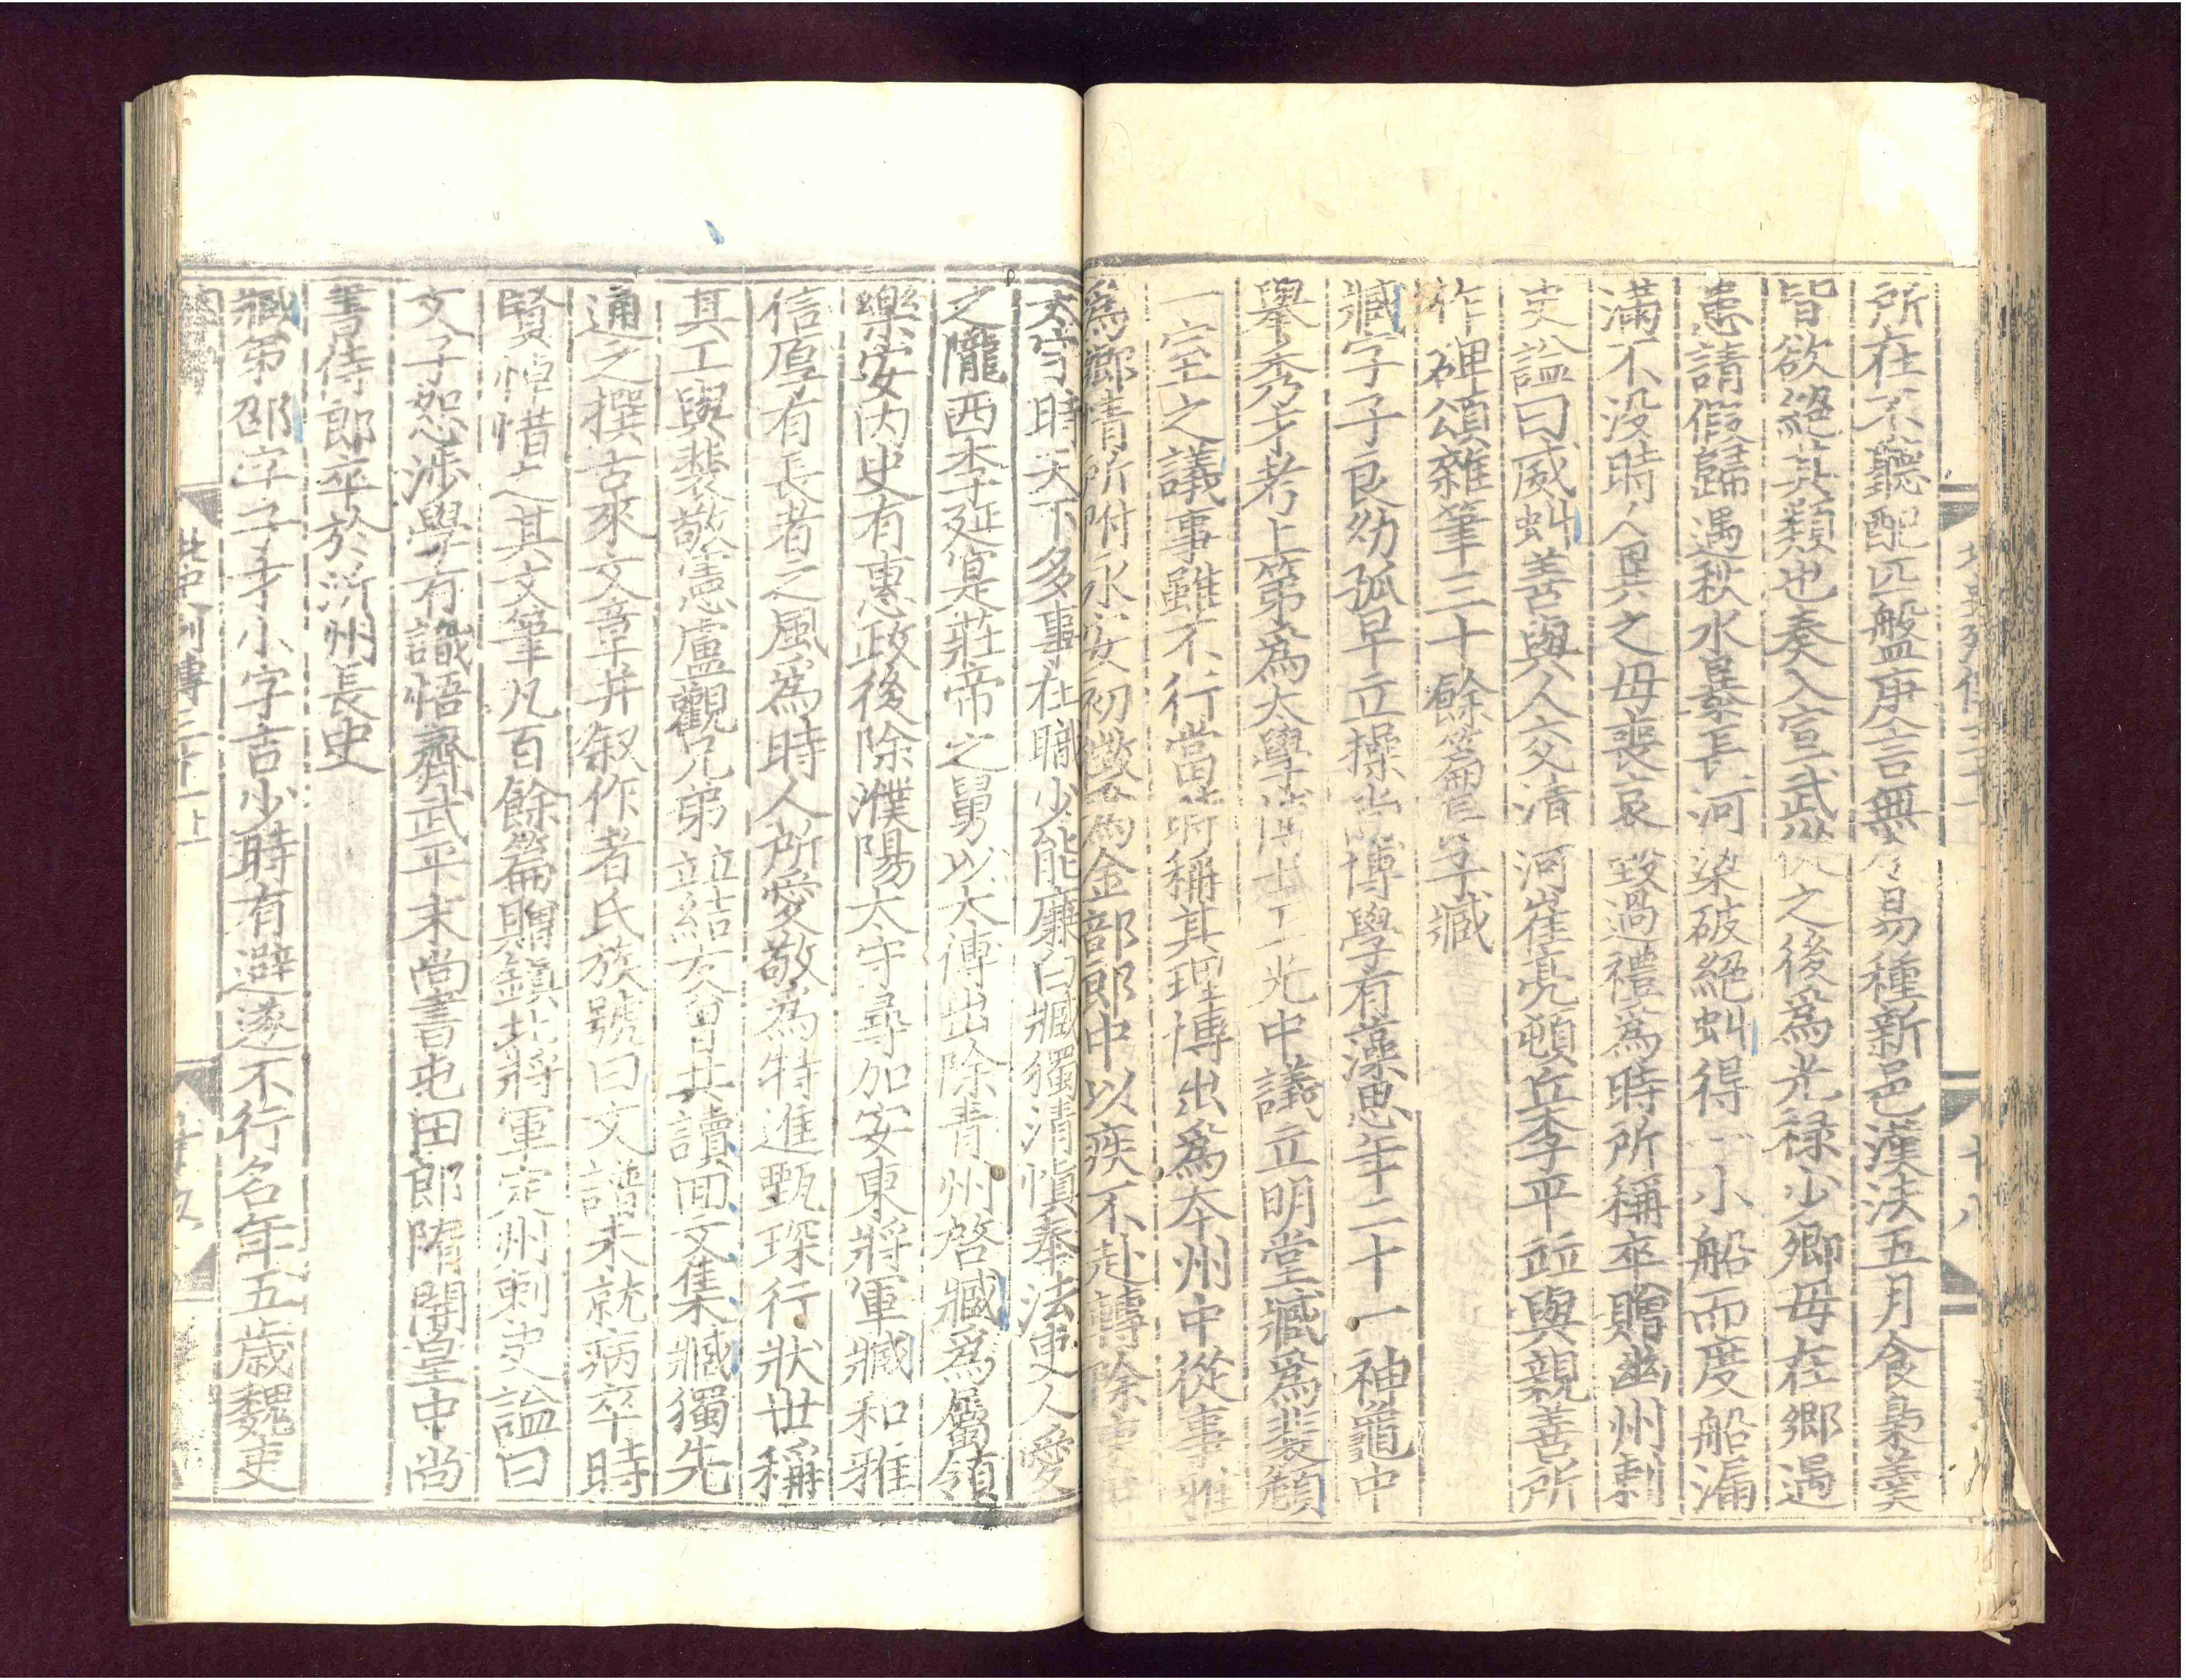 北史列傳三十一
十八
所在不聽配匹盤庚言無令易種新邑漢法五月食梟羹
皆欲絕其類也奏入宣武從之後爲光祿少卿母在鄉遇
患請假歸遇秋水暴長河梁破絕虯得一小船而度船漏
滿不沒時人異之母喪哀毀過禮爲時所稱卒贈幽州刺
史諡曰威虯善與人交清河崔亮頓丘李平並與親善所
作碑頌雜筆三十餘篇長子臧
臧字子良幼孤早立操尚博學有藻思年二十一神龜中
舉秀才考上第爲太學博士正光中議立明堂臧爲裴頠
一室之議事雖不行當時稱其理博出爲本州中從事雅
爲鄉情所附永安初徵爲金部郎中以疾不赴轉除東
太守時天下多事在職少能廉白臧獨清愼奉法吏人愛
之隴西李延寔莊帝之舅以太傅出除青州啓臧爲屬領
樂安內史有惠政後除濮陽太守尋加安東將軍臧和雅
信厚有長者之風爲時人所愛敬爲特進甄琛行狀世稱
其工與裴敬憲盧觀兄弟並結友曾共讀回文集臧獨先
通之撰古來文章并叙作者氏族號曰文譜未就病卒時
賢悼惜之其文筆凡百餘篇贈鎮北將軍定州刺史諡曰
文子恕涉學有識悟齊武平末尚書屯田郎隋開皇中尚
書侍郎卒於沂州長史
臧弟邵字子才小字吉少時有避遂不行名年五歲魏吏
北史列傳三十一上